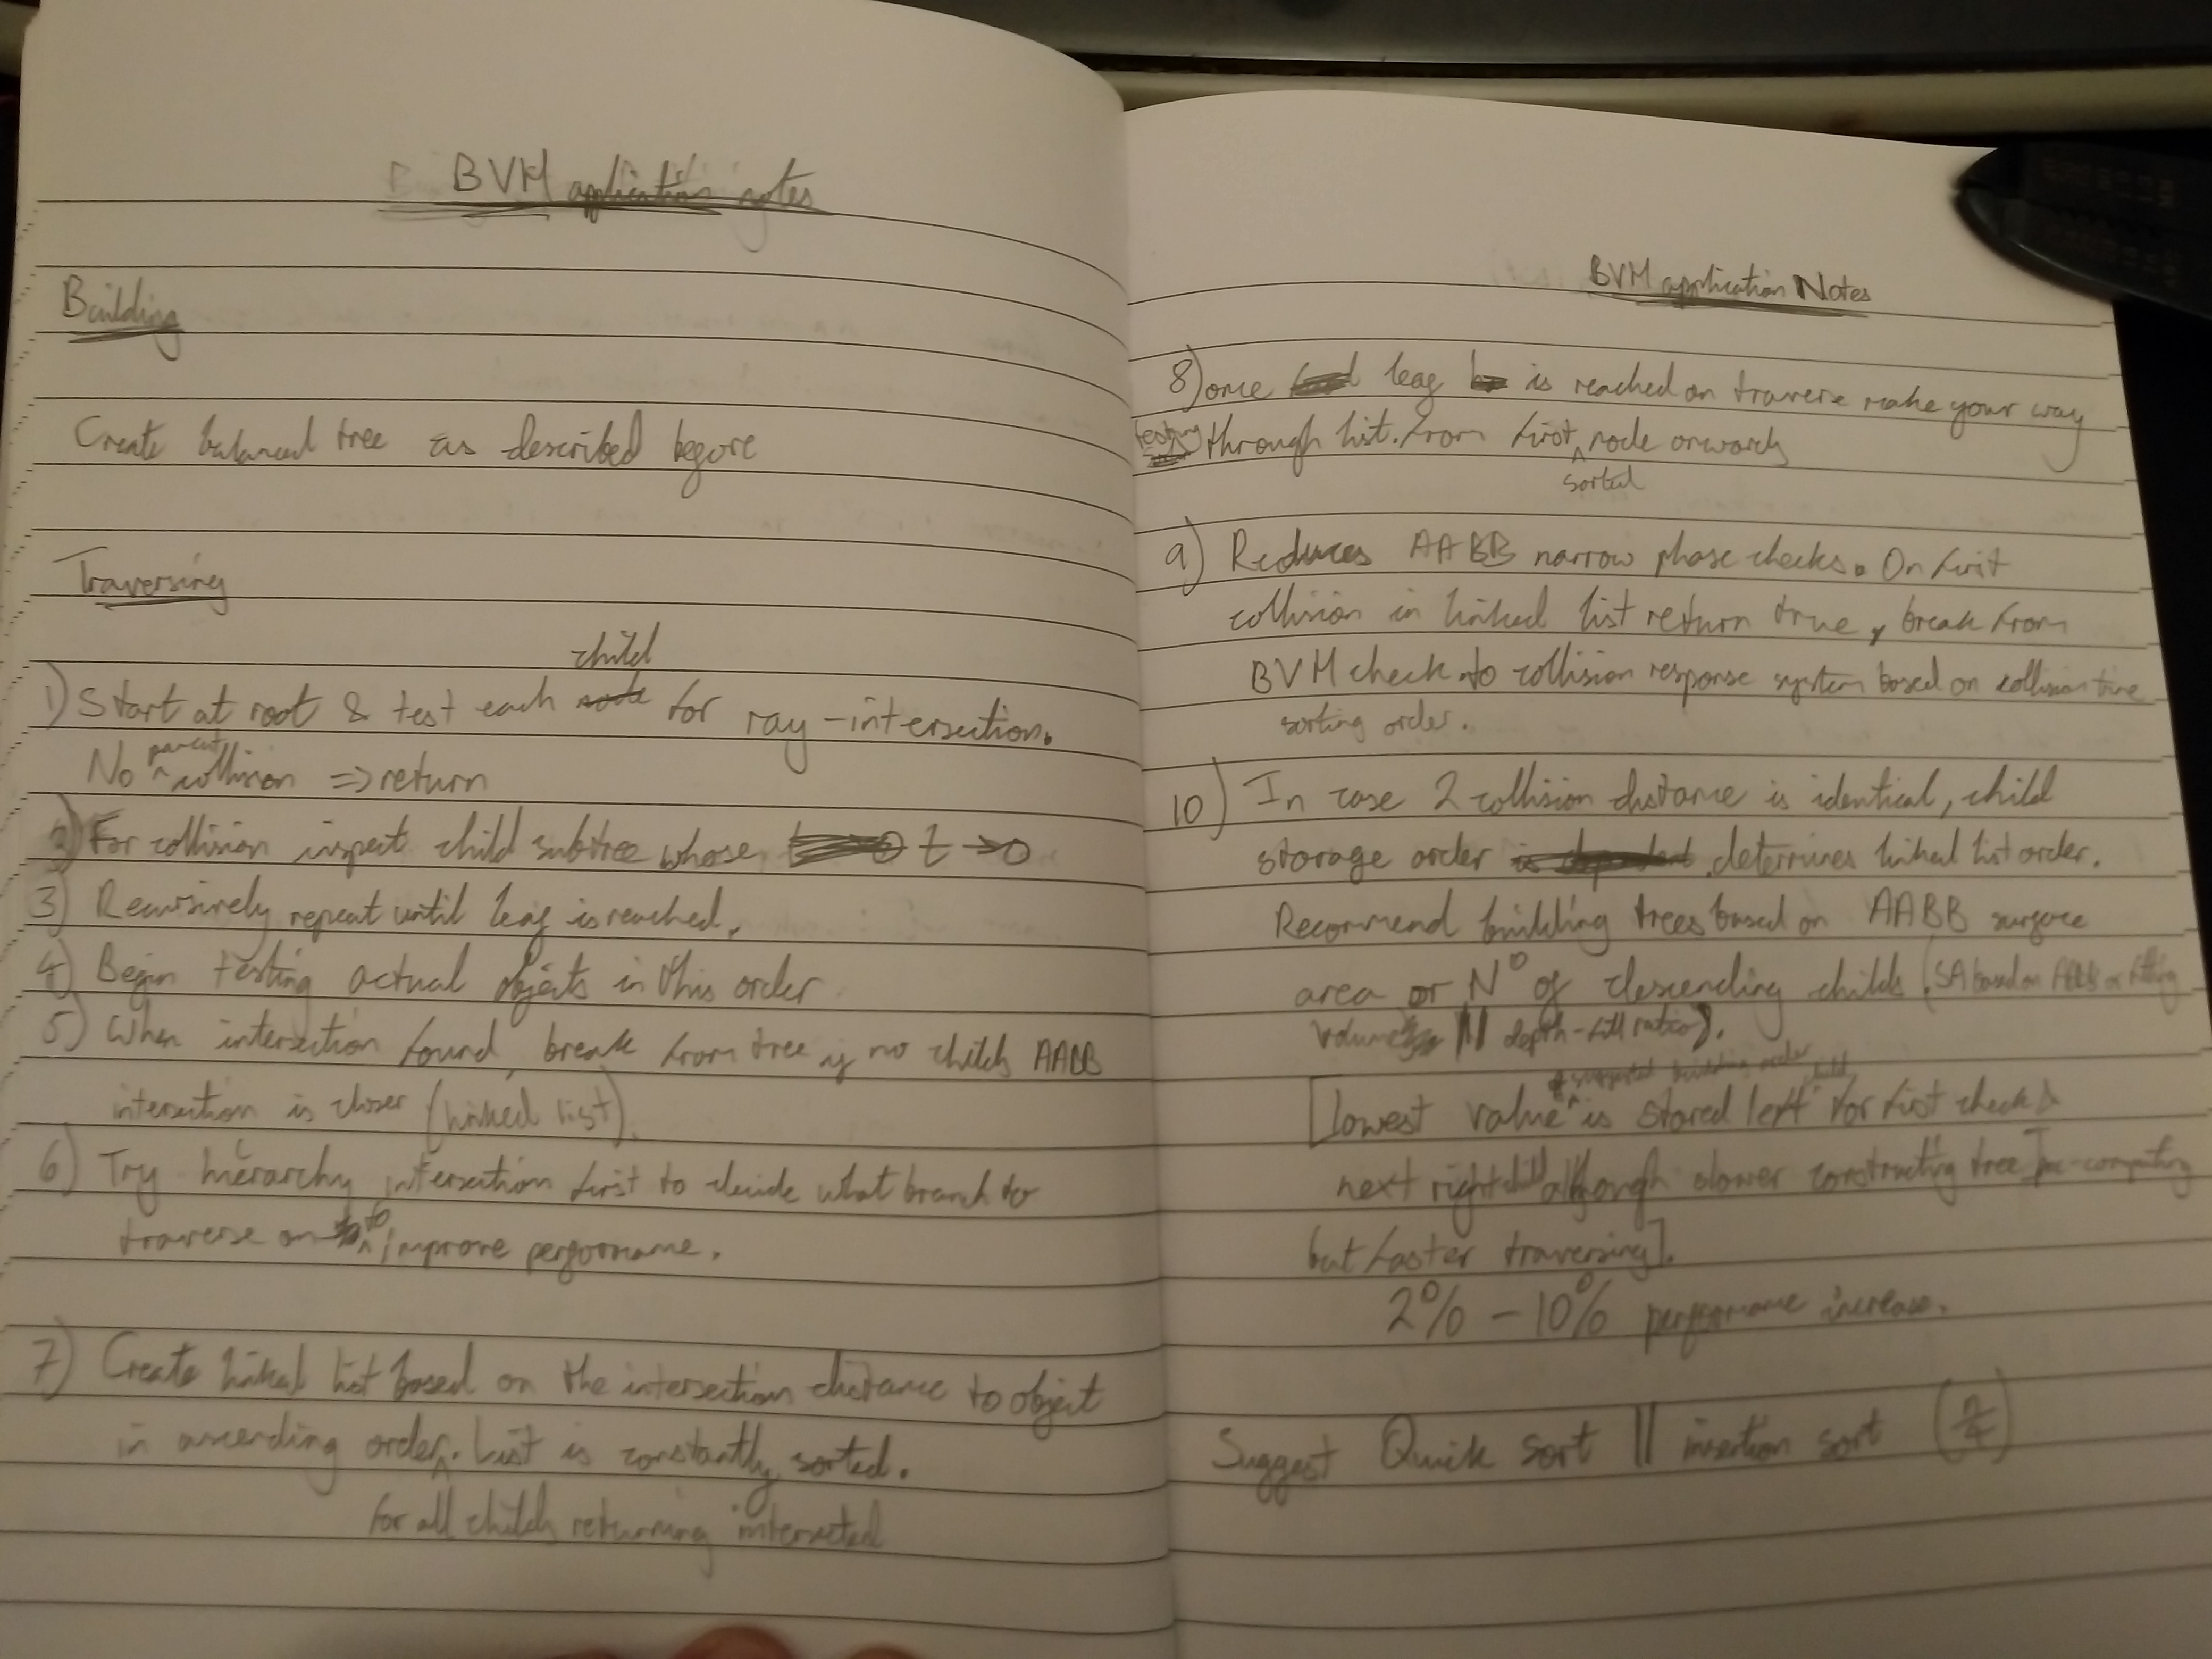 BVH application notes
Building
Create balanced tree as described before
Traversing
child
1) Start at root & test each node for ray-intersection.
parent
No collision => return
2) For collision inspect child subtree whose t → 0
3) Recursively repeat until leaf is reached.
4) Begin testing actual objects in this order
5) When intersection found, break from tree if no childs AABB
intersection is closer (linked list).
6) Try hierarchy intersection first to decide what branch to
traverse on to improve performance.
7) Create linked list based on the intersection distance to object
in ascending order. List is constantly sorted.
for all childs returning intersected
BVH application Notes
8) once leaf is reached on travere make your way
testing through list. from first node onwards
sorted
9) Reduces AABB narrow phase checks. On first
collision in linked list return true, break from
BVH check to collision response system based on collision time
sorting order.
10) In case 2 collision distance is identical, child
storage order determines linked list order.
Recommend building trees based on AABB surface
area or Nº of descending childs (SA based on AABBs or fitting
volume || depth-fill ratio).
of suggested building order child
[lowest value is stored left for first check &
next right child although slower constructing tree pre-computing
but faster traversing].
2% - 10% performance increase.
Suggest Quick sort || insertion sort (n/4)